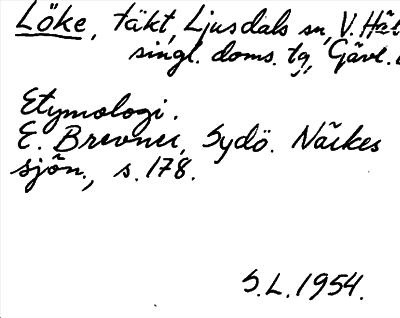 Löke, täkt, Ljusdals sn, V. Häl
singl. doms. tg, Gävl.
Etymologi.
E. Brevner, Sydö. Närkes
sjön., s. 178.
S.L. 1954.